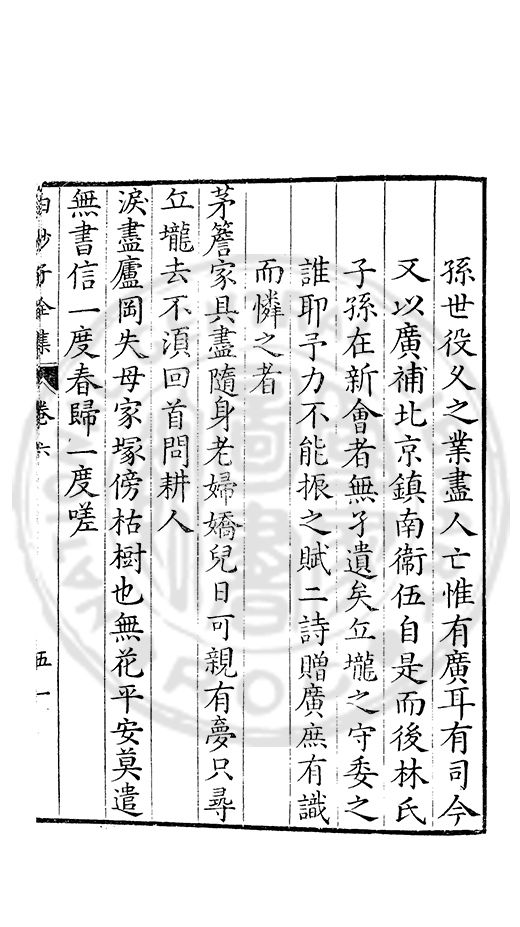 孫世役乂之業盡人亡惟有廣耳有司今
又以廣補北京鎮南衞伍自是而後林氏
子孫在新會者無孑遺矣丘壠之守委之
誰耶予力不能振之賦二詩贈廣庶有識
而憐之者
茅簷家具盡隨身老婦嬌兒日可親有夢只尋
丘壠去不湏回首問耕人
淚盡廬岡失母家塚傍枯樹也無花平安莫遣
無書信一度春歸一度嗟
白沙子全集 卷六 五一